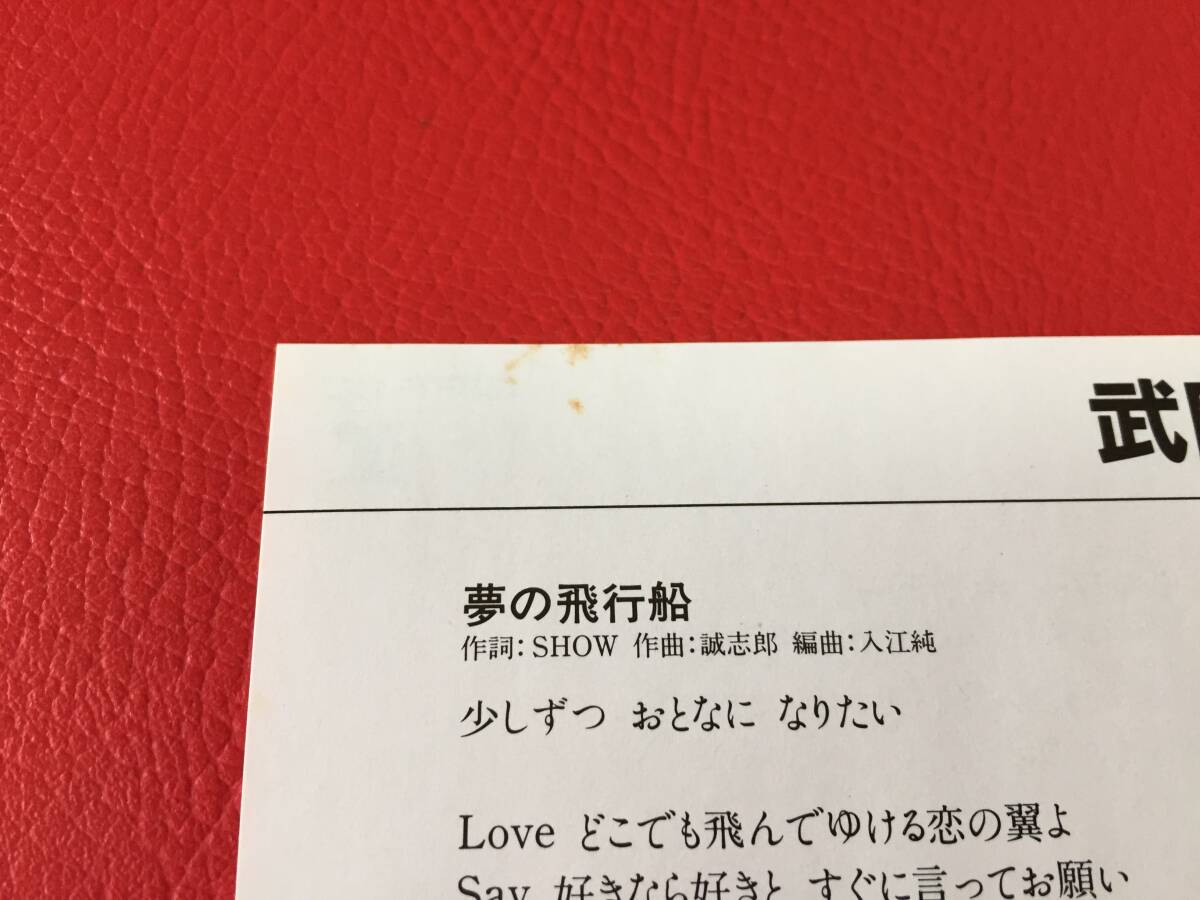 武
夢の飛行船
作詞：SHOW 作曲：誠志郎 編曲：入江純
少しずつ おとなに なりたい
Love どこでも飛んでゆける恋の翼よ
Say 好きなら好きと すぐに言ってお願い